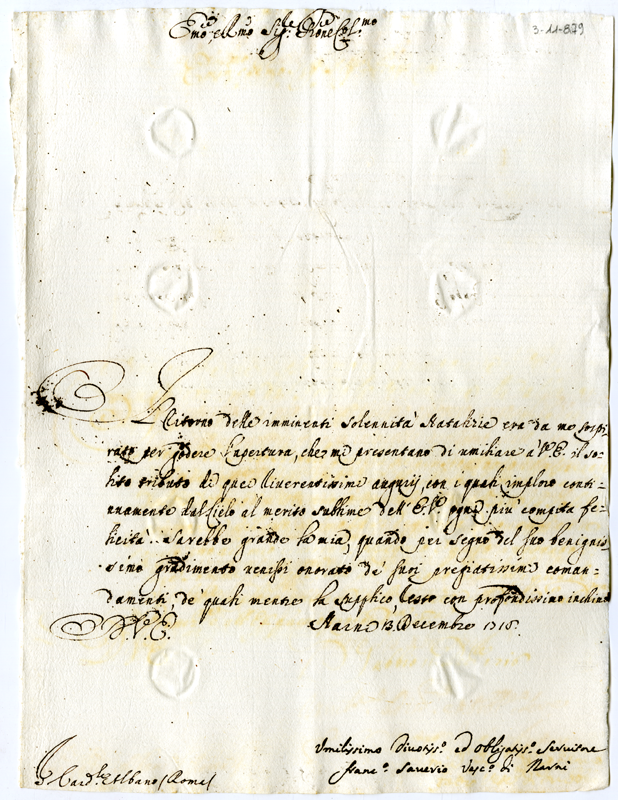 3-11-879
Emo, e Rmo Sig.re Prone Col.mo
Il ritorno delle imminenti solennità Natalizie era da me sospi-
rato per godere l'apertura, che mi presentano di umiliare à V.E. il so-
lito tributo de quei riverentissimi augurij, con i quali imploro conti-
nuamente dal Cielo al merito sublime dell'E.V. ogni più compita fe-
licità. Sarebbe grande la mia, quando per segno del suo benignis-
simo gradimento venissi onorato de' suoi pregiatissimi coman-
damenti, de' quali mentre la supplico, resto con profondissimo inchino
D. V. E. Narni 13 Decembre 1718.
Umilissimo Divotiss.o ed obligatiss.o Servitore
Franc.o Saverio Vesc.o di Narni
S. Card.le Albano (Roma)